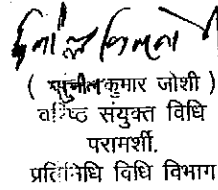 ( सुनीलकुमार जोशी )
वरिष्ठ संयुक्त विधि
परामर्शी.
प्रतिनिधि विधि विभाग